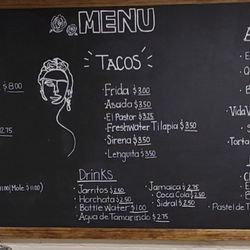 MENU
TACOS
Frida $3.00
Asado $3.50
El Pastor $3.25
Freshwater Tilapia $3.50
Sirena $3.50
Lenguita $3.50
$8.00
$2.75
Drinks
Jarritos $2.50
Horchata $2.50
Bottle Water $1.00
Agua de Tamarindo $2.75
Jamaica $2.75
Coca Cola $2.50
Sidral $2.50
(Mole $11.00)
Vida V
Torta
Pastel de T